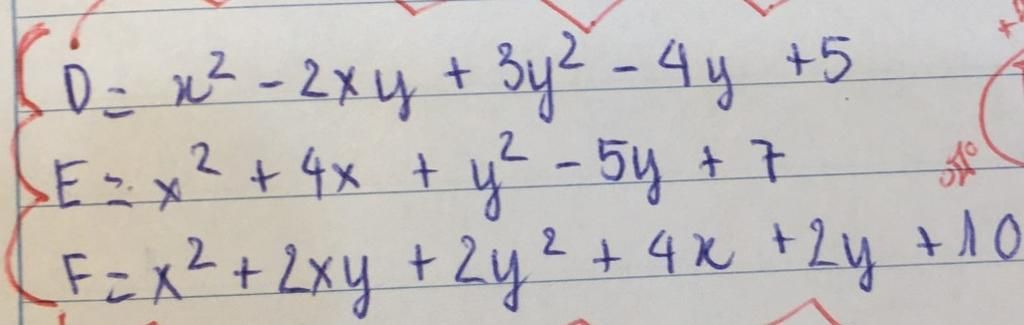 D = x² - 2xy + 3y² - 4y + 5
E = x² + 4x + y² - 5y + 7
F = x² + 2xy + 2y² + 4x + 2y + 10